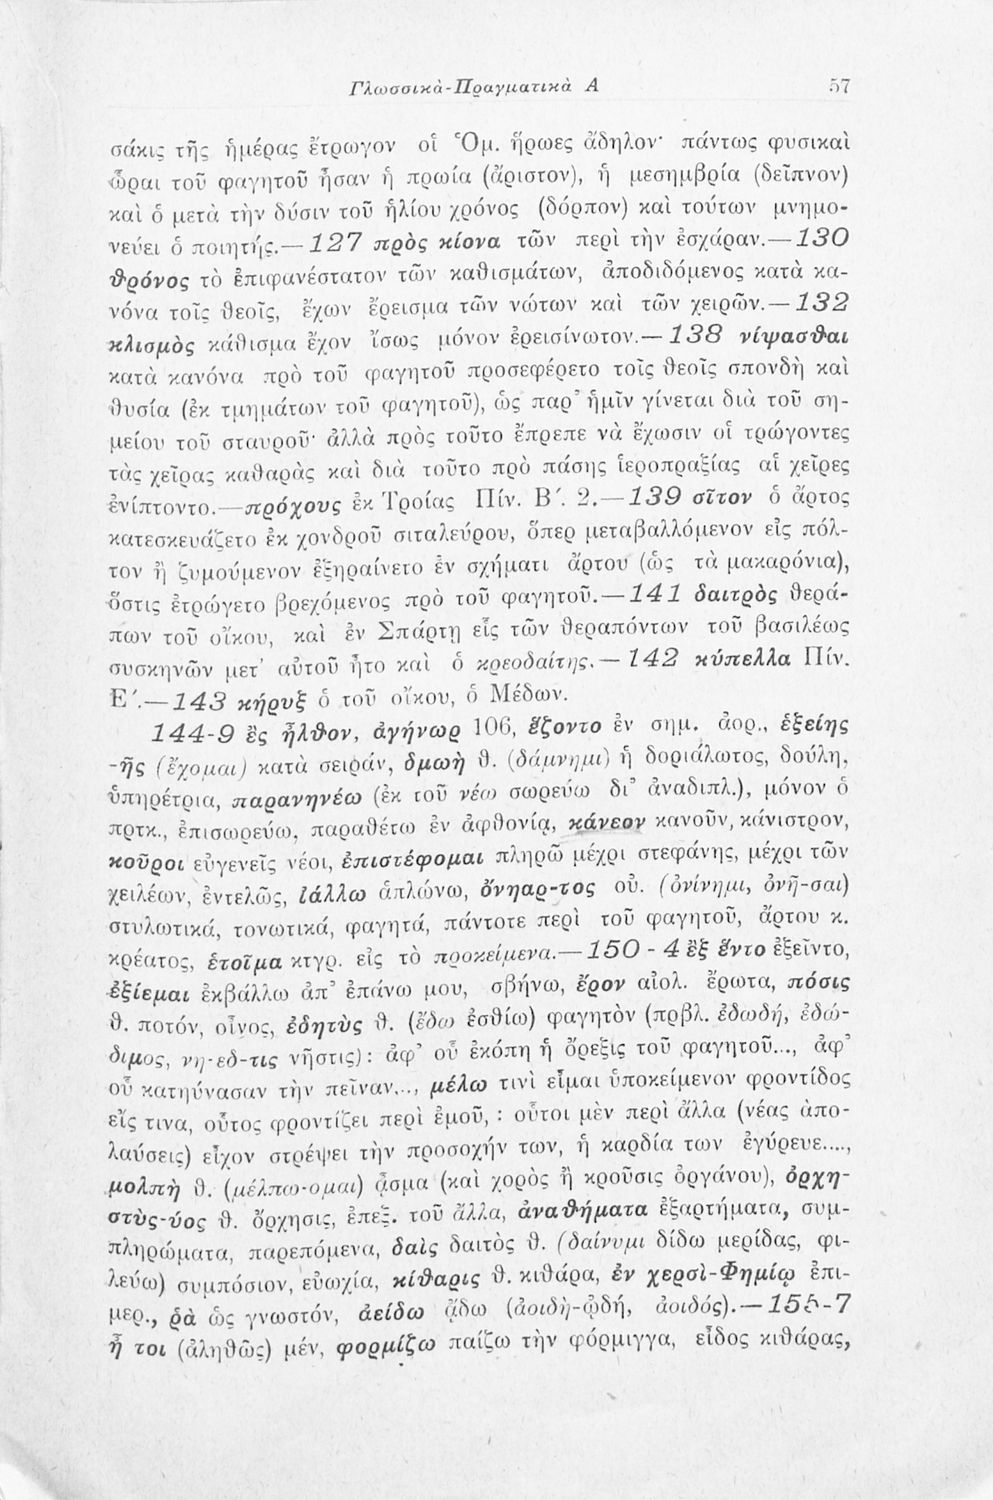 Γλωσσικὰ-Πραγματικὰ Α 57
σάκις τῆς ἡμέρας ἔτρωγον οἱ Ὅμ. ἥρωες ἄδηλον· πάντως φυσικαὶ
ὧραι τοῦ φαγητοῦ ἦσαν ἡ πρωία (ἄριστον), ἡ μεσημβρία (δεῖπνον)
καὶ ὁ μετὰ τὴν δύσιν τοῦ ἡλίου χρόνος (δόρπον) καὶ τούτων μνημο-
νεύει ὁ ποιητής.—127 πρὸς κίονα τῶν περὶ τὴν ἐσχάραν.—130
θρόνος τὸ ἐπιφανέστατον τῶν καθισμάτων, ἀποδιδόμενος κατὰ κα-
νόνα τοῖς θεοῖς, ἔχων ἔρεισμα τῶν νώτων καὶ τῶν χειρῶν.—132
κλισμὸς κάθισμα ἔχον ἴσως μόνον ἐρεισίνωτον.—138 νίψασθαι
κατὰ κανόνα πρὸ τοῦ φαγητοῦ προσεφέρετο τοῖς θεοῖς σπονδὴ καὶ
θυσία (ἐκ τμημάτων τοῦ φαγητοῦ), ὡς παρ' ἡμῖν γίνεται διὰ τοῦ ση-
μείου τοῦ σταυροῦ· ἀλλὰ πρὸς τοῦτο ἔπρεπε νὰ ἔχωσιν οἱ τρώγοντες
τὰς χεῖρας καθαρὰς καὶ διὰ τοῦτο πρὸ πάσης ἱεροπραξίας αἱ χεῖρες
ἐνίπτοντο.—πρόχους ἐκ Τροίας Πίν. Β΄. 2.—139 σῖτον ὁ ἄρτος
κατεσκευάζετο ἐκ χονδροῦ σιταλεύρου, ὅπερ μεταβαλλόμενον εἰς πόλ-
τον ἢ ζυμούμενον ἐξηραίνετο ἐν σχήματι ἄρτου (ὡς τὰ μακαρόνια),
ὅστις ἐτρώγετο βρεχόμενος πρὸ τοῦ φαγητοῦ.—141 δαιτρὸς θερά-
πων τοῦ οἴκου, καὶ ἐν Σπάρτῃ εἷς τῶν θεραπόντων τοῦ βασιλέως
συσκηνῶν μετ' αὐτοῦ ἦτο καὶ ὁ κρεοδαίτης.—142 κύπελλα Πίν.
Ε΄.—143 κήρυξ ὁ τοῦ οἴκου, ὁ Μέδων.
144-9 ἐς ἦλθον, ἀγήνωρ 106, ἕζοντο ἐν σημ. ἀορ., ἑξείης
-ῆς (ἔχομαι) κατὰ σειράν, δμωὴ θ. (δάμνημι) ἡ δοριάλωτος, δούλη,
ὑπηρέτρια, παρανηνέω (ἐκ τοῦ νέω σωρεύω δι' ἀναδιπλ.), μόνον ὁ
πρτκ., ἐπισωρεύω, παραθέτω ἐν ἀφθονίᾳ, κάνεον κανοῦν, κάνιστρον,
κοῦροι εὐγενεῖς νέοι, ἐπιστέφομαι πληρῶ μέχρι στεφάνης, μέχρι τῶν
χειλέων, ἐντελῶς, ἰάλλω ἁπλώνω, ὄνηαρ-τος οὐ. (ὀνίνημι, ὀνῆ-σαι)
στυλωτικά, τονωτικά, φαγητά, πάντοτε περὶ τοῦ φαγητοῦ, ἄρτου κ.
κρέατος, ἑτοῖμα κτγρ. εἰς τὸ προκείμενα.—150 - 4 ἐξ ἕντο ἐξεῖντο,
ἐξίεμαι ἐκβάλλω ἀπ' ἐπάνω μου, σβήνω, ἔρον αἰολ. ἔρωτα, πόσις
θ. ποτόν, οἶνος, ἐδητὺς θ. (ἔδω ἐσθίω) φαγητὸν (πρβλ. ἐδωδή, ἐδώ-
διμος, νη-εδ-τις νῆστις): ἀφ' οὗ ἐκόπη ἡ ὄρεξις τοῦ φαγητοῦ..., ἀφ'
οὗ κατηύνασαν τὴν πεῖναν..., μέλω τινὶ εἶμαι ὑποκείμενον φροντίδος
εἴς τινα, οὗτος φροντίζει περὶ ἐμοῦ, : οὗτοι μὲν περὶ ἄλλα (νέας ἀπο-
λαύσεις) εἶχον στρέψει τὴν προσοχήν των, ἡ καρδία των ἐγύρευε....,
μολπὴ θ. (μέλπω-ομαι) ᾆσμα (καὶ χορὸς ἢ κροῦσις ὀργάνου), ὀρχη-
στὺς-ύος θ. ὄρχησις, ἐπεξ. τοῦ ἄλλα, ἀναθήματα ἐξαρτήματα, συμ-
πληρώματα, παρεπόμενα, δαὶς δαιτὸς θ. (δαίνυμι δίδω μερίδας, φι-
λεύω) συμπόσιον, εὐωχία, κίθαρις θ. κιθάρα, ἐν χερσὶ-Φημίῳ ἐπι-
μερ., ῥὰ ὡς γνωστόν, ἀείδω ᾄδω (ἀοιδὴ-ᾠδή, ἀοιδός).—155-7
ἦ τοι (ἀληθῶς) μέν, φορμίζω παίζω τὴν φόρμιγγα, εἶδος κιθάρας,